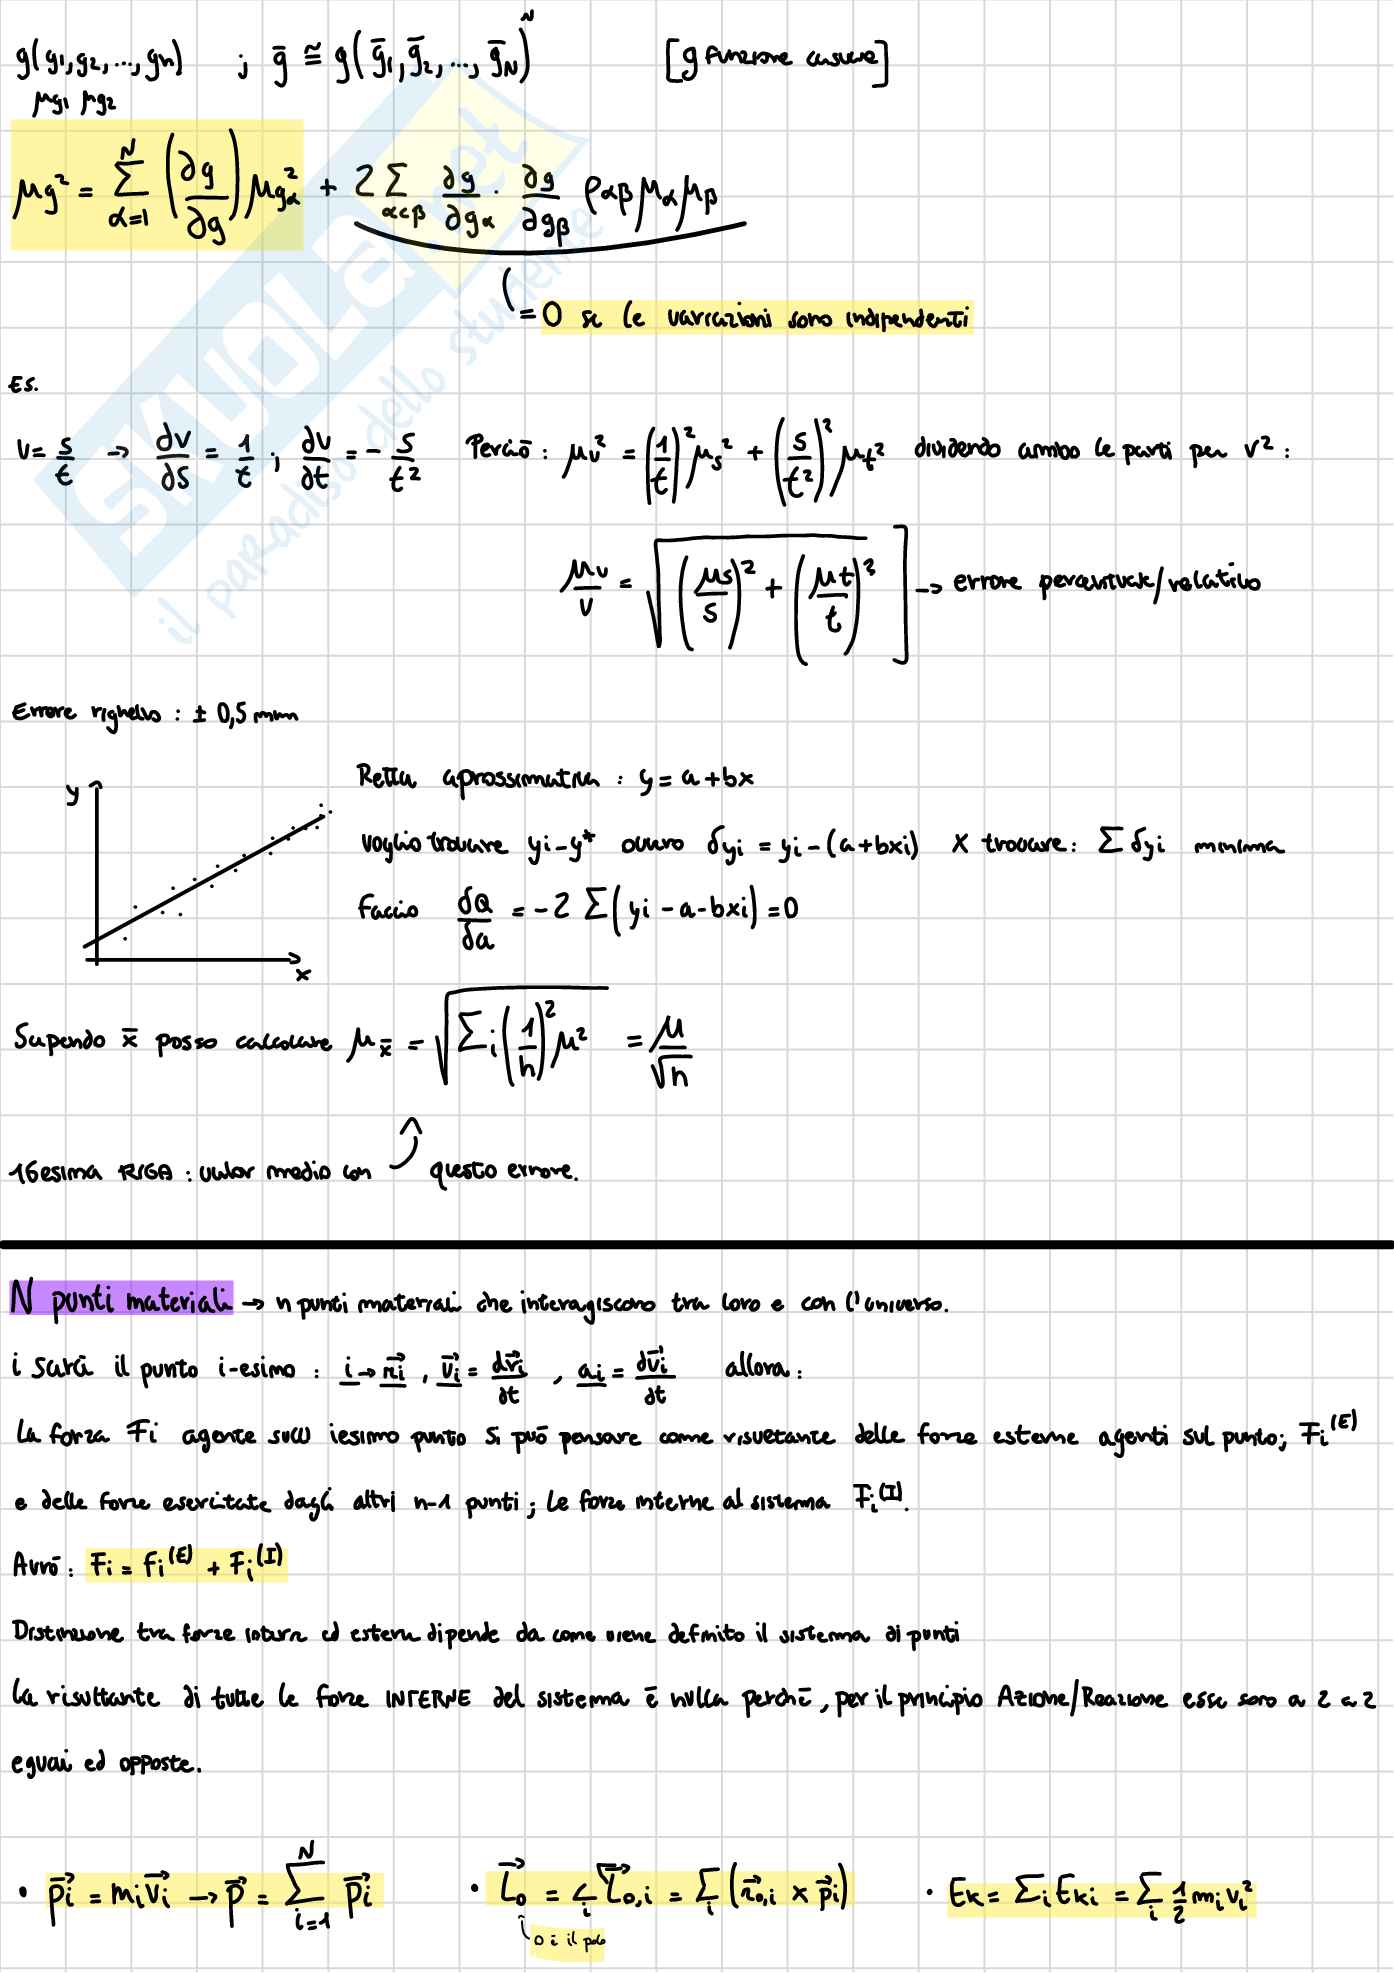 g(g1,g2,...,gn) ; ḡ ≅ g(ḡ1,ḡ2,...,ḡN) [g funzione casuale]
μg1 μg2
μg² = ∑(α=1, N) (∂g/∂g) μgα² + 2∑(α<β) ∂g/∂gα · ∂g/∂gβ ραβ μα μβ
= 0 se le variazioni sono indipendenti
Es.
v = s/t → ∂v/∂s = 1/t ; ∂v/∂t = - s/t² Perciò : μv² = (1/t)² μs² + (s/t²)² μt² dividendo ambo le parti per v² :
μv/v = √((μs/s)² + (μt/t)²) ] → errore percentuale/relativo
Errore righello : ± 0,5 mm
Retta aprossimativa : y = a+bx
y
voglio trovare yi-y* ovvero δyi = yi-(a+bxi) x trovare: ∑ δyi minima
faccio δQ/δa = -2 ∑(yi-a-bxi) = 0
x
Sapendo x̄ posso calcolare μx̄ = √(∑i (1/n)² μ²) = μ/√n
16esima RIGA : valor medio con questo errore.
N punti materiali → n punti materiali che interagiscono tra loro e con l'universo.
i sarà il punto i-esimo : i → r⃗i , v⃗i = dr⃗i/dt , ai = dv⃗i/dt allora:
La forza Fi agente sull iesimo punto si può pensare come risultante delle forze esterne agenti sul punto; Fi(E)
e delle forze esercitate dagli altri n-1 punti ; le forze interne al sistema Fi(I).
Avrò : Fi = fi(E) + Fi(I)
Distinzione tra forze interne ed esterne dipende da come viene definito il sistema di punti
La risultante di tutte le forze INTERNE del sistema è nulla perchè, per il principio Azione/Reazione esse sono a 2 a 2
eguai ed opposte.
• p⃗i = mi v⃗i → p⃗ = ∑(i=1, N) p⃗i • L⃗o = ∑i L⃗o,i = ∑i (r⃗o,i × p⃗i) • Ek = ∑i Eki = ∑i 1/2 mi vi²
o è il polo
SKUOLA.net
il paradiso dello studente